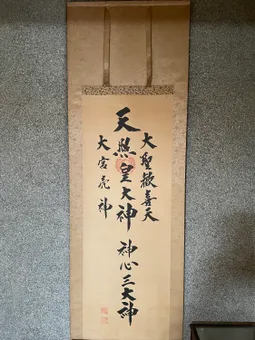 大聖歡喜天
天照皇大神 神心三大神
大宮売神